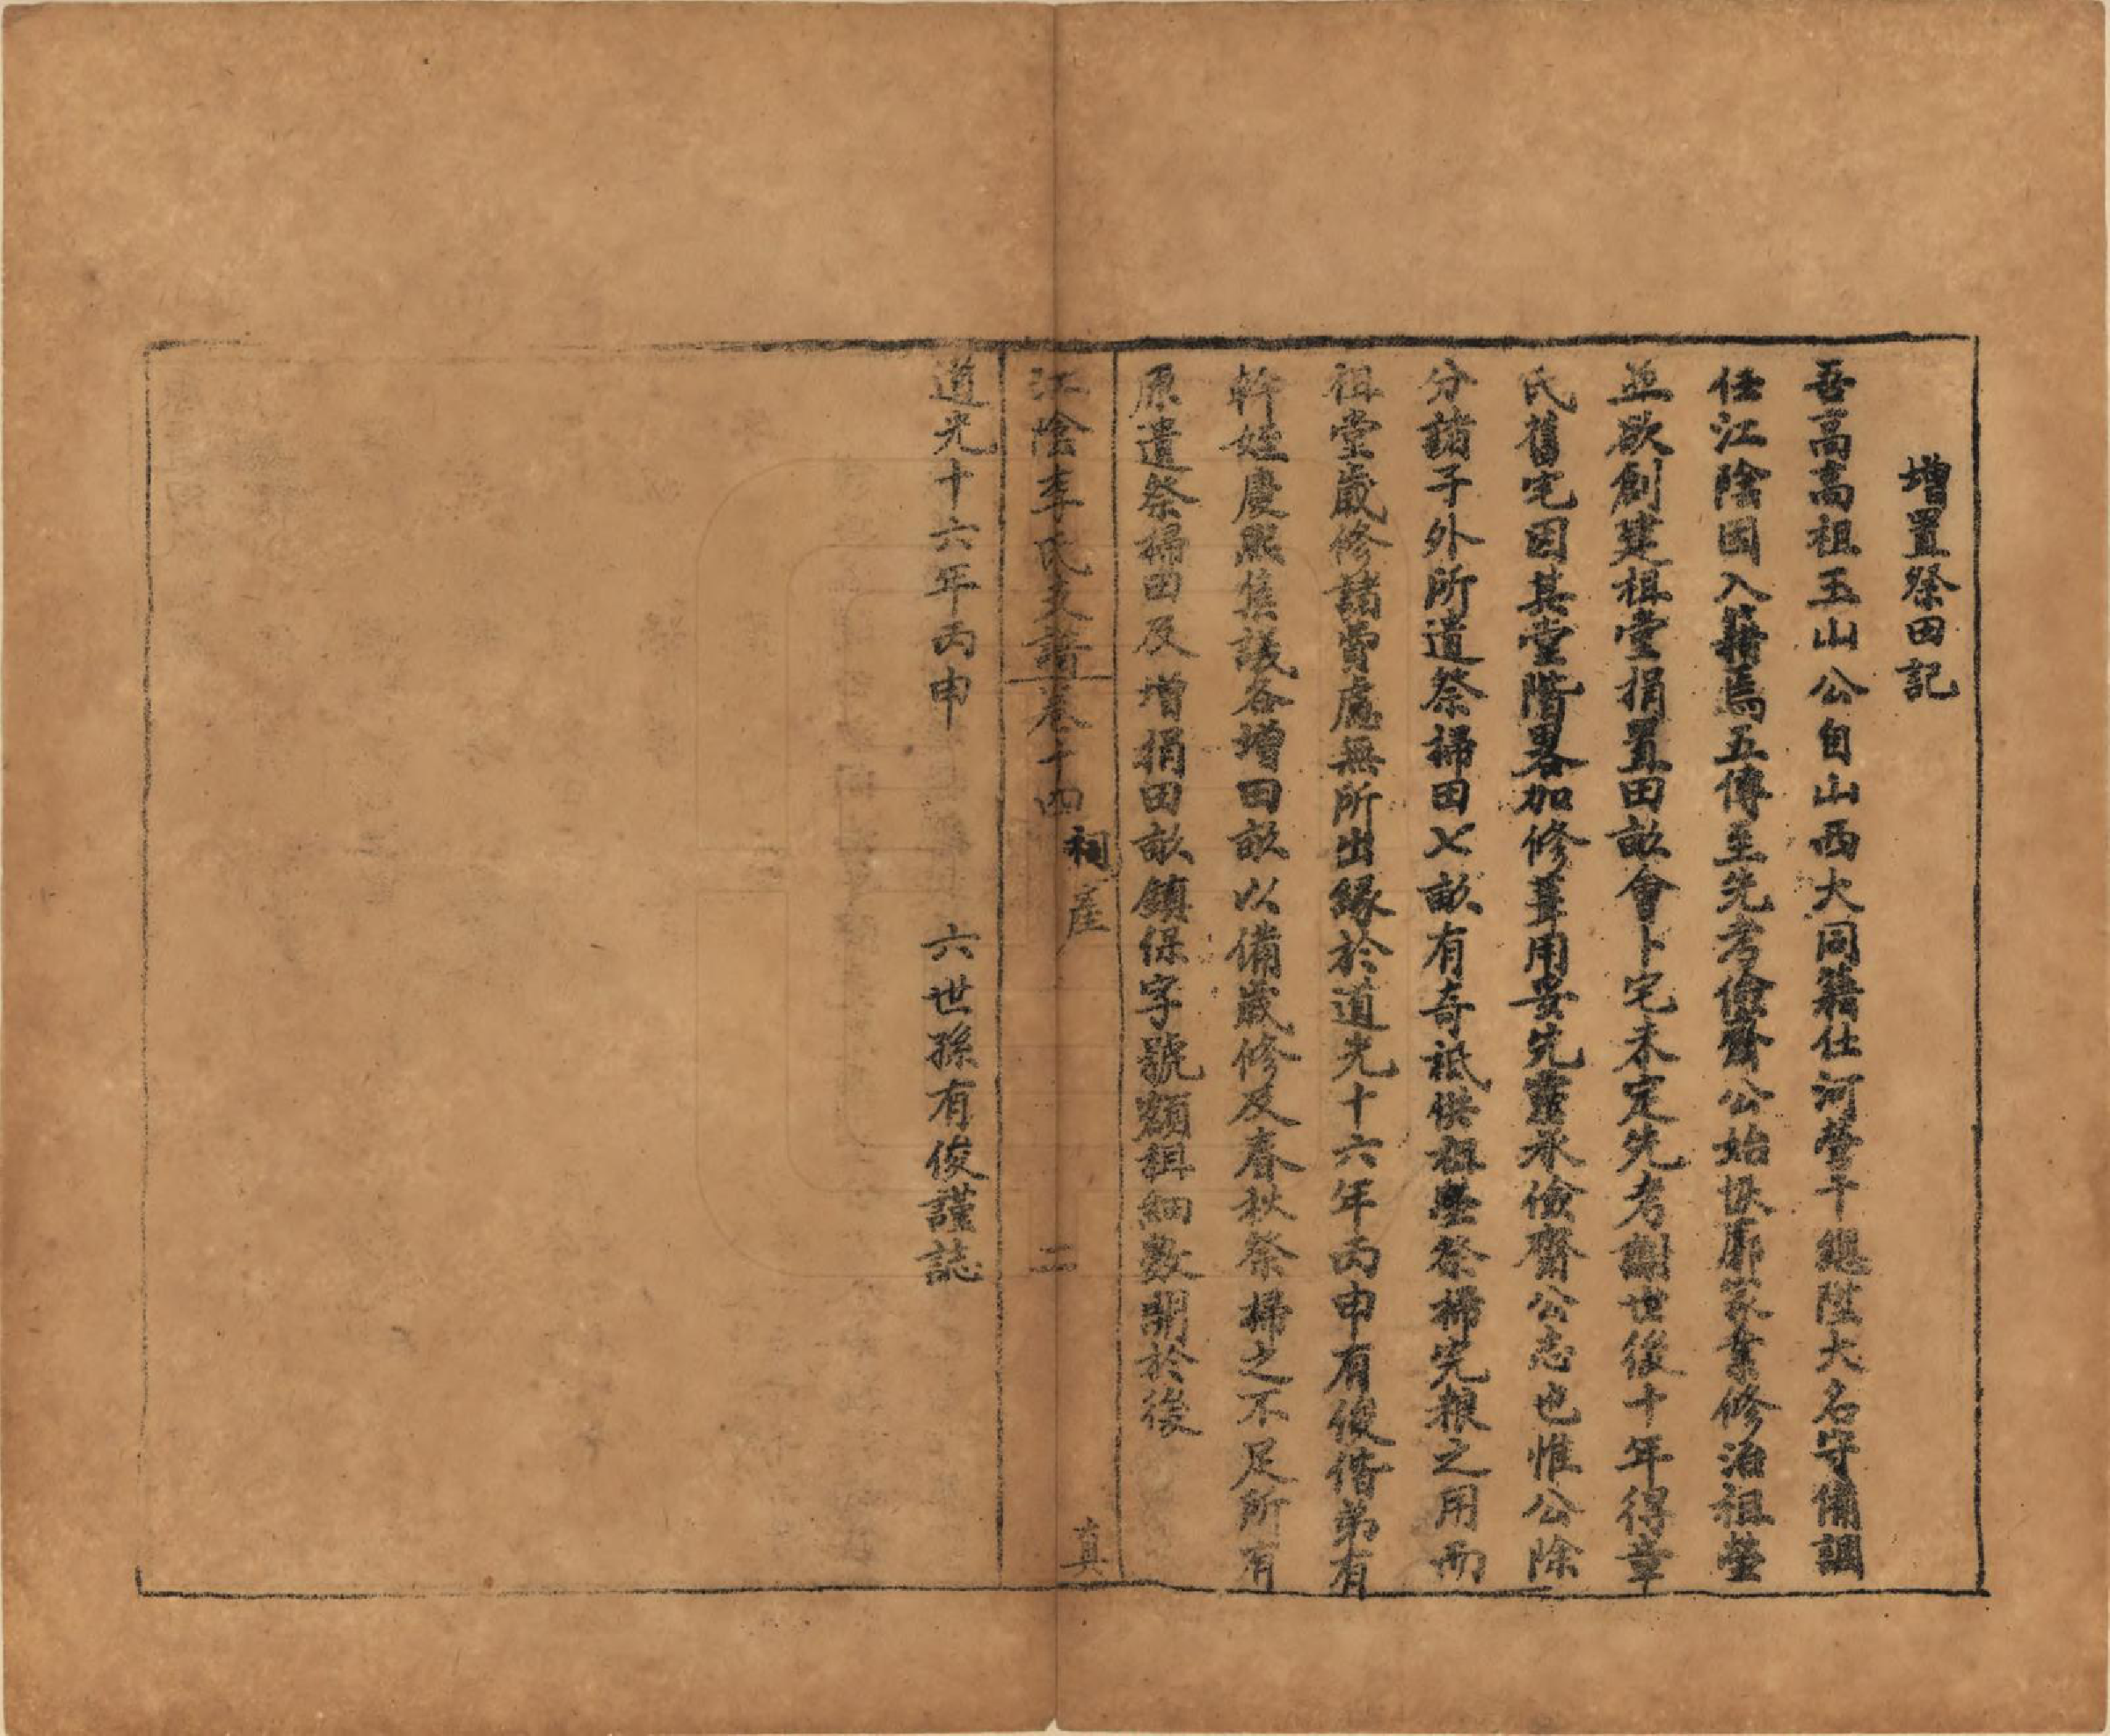 增置祭田記
吾高高祖玉山公自山西大同籍仕河營千總陞大名守備調
任江陰因入籍焉五傳至先考儉齋公始恢廓家業修治祖塋
並欲創建祖堂捐置田畝會卜宅未定先考謝世後十年得章
氏舊宅因其堂階畧加修葺用妥先靈承儉齋公志也惟公除
分諸子外所遺祭掃田七畝有奇祗供祖塋祭掃完粮之用而
祖堂歲修諸費處無所出緣於道光十六年丙申有俊偕弟有
幹姪慶熙集議各增田畝以備歲修及春秋祭掃之不足所有
原遺祭掃田及增捐田畝鎮保字號額租細數開於後
江陰李氏支譜卷十四 祠產 二 真
道光十六年丙申 六世孫有俊謹誌